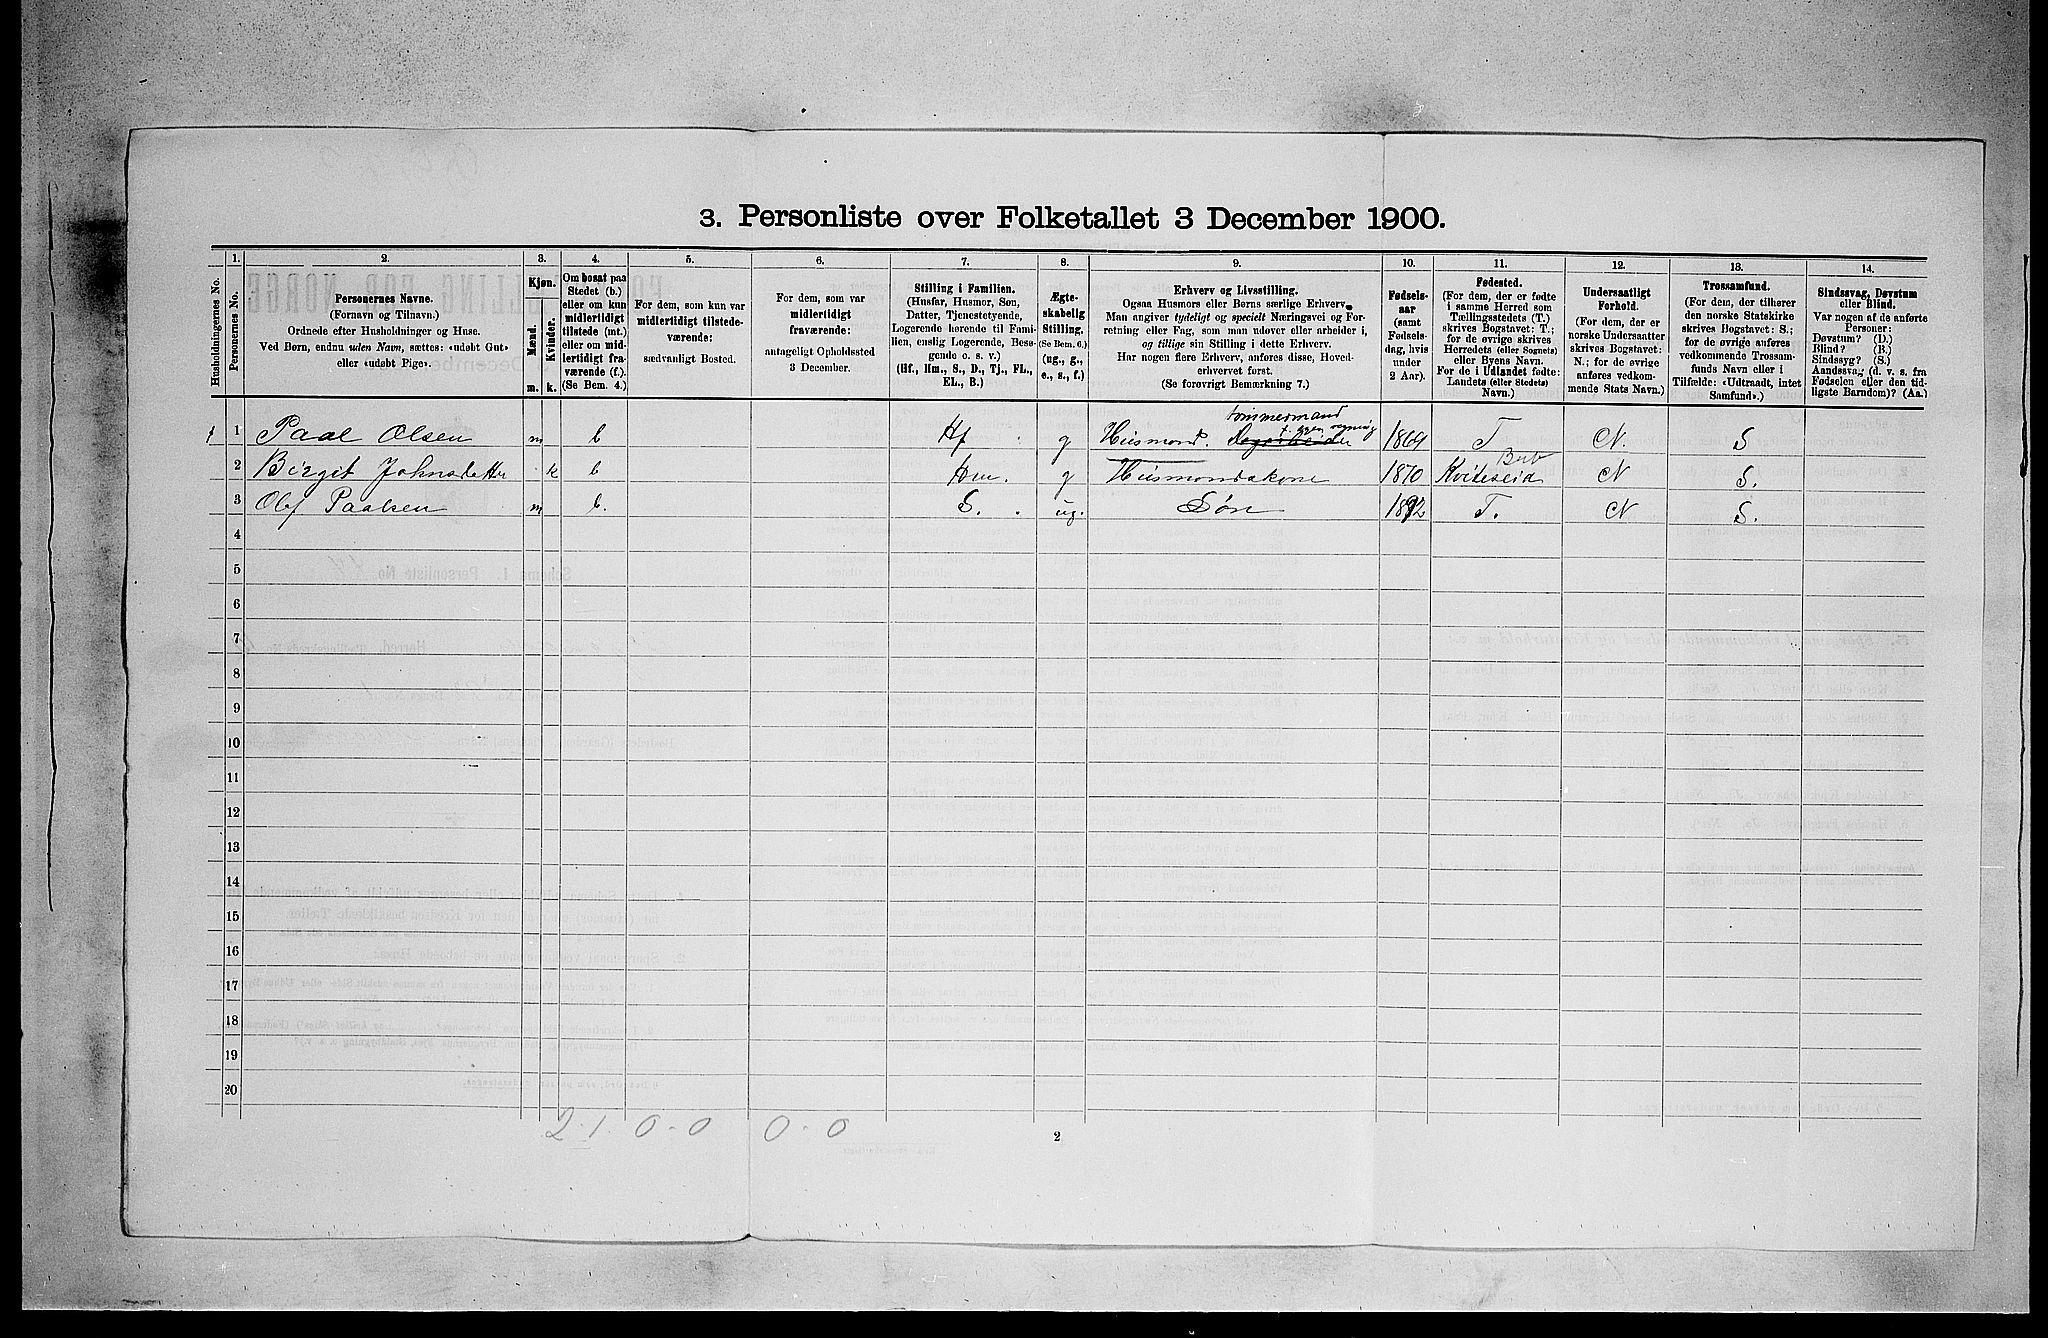 3. Personliste over Folketallet 3 December 1900.
Husholdningernes No.
1. Personernes No.
2. Personernes Navne.
(Fornavn og Tilnavn.)
Ordnede efter Husholdninger og Huse.
Ved Børn, endnu uden Navn, sættes: «udøbt Gut»
eller «udøbt Pige».
3. Kjøn.
Mænd. m.
Kvinder. k.
4. Om bosat paa
Stedet (b.)
eller om kun
midlertidigt
tilstede (mt.)
eller om mid-
lertidigt fra-
værende (f.).
(Se Bem. 4.)
5. For dem, som kun var
midlertidigt tilstede-
værende:
sædvanligt Bosted.
6. For dem, som var
midlertidigt
fraværende:
antageligt Opholdssted
3 December.
7. Stilling i Familien.
(Husfar, Husmor, Søn,
Datter, Tjenestetyende,
Logerende hørende til Fami-
lien, enslig Logerende, Besø-
gende o. s. v.)
(Hf., Hm., S., D., Tj., FL.,
EL., B.)
8. Ægte-
skabelig
Stilling.
(Se Bem. 6.)
(ug., g.,
e., s., f.)
9. Erhverv og Livsstilling.
Ogsaa Husmors eller Børns særlige Erhverv.
Man angiver tydeligt og specielt Næringsvei og For-
retning eller Fag, som man udøver eller arbeider i,
og tillige sin Stilling i dette Erhverv.
Har nogen flere Erhverv, anføres disse, Hoved-
erhvervet først.
(Se forøvrigt Bemærkning 7.)
10. Fødsels-
aar
(samt
Fødsels-
dag, hvis
under
2 Aar).
11. Fødested.
(For dem, der er fødte
i samme Herred som
Tællingsstedets (T.)
skrives Bogstavet: T.;
for de øvrige skrives
Herredets (eller Sognets)
eller Byens Navn.
For de i Udlandet fødte:
Landets (eller Stedets)
Navn.)
12. Undersaatligt
Forhold.
(For dem, der er
norske Undersaatter
skrives Bogstavet:
N.; for de øvrige
anføres vedkom-
mende Stats Navn.)
13. Trossamfund.
(For dem, der tilhører
den norske Statskirke
skrives Bogstavet: S.;
for de øvrige anføres
vedkommende Trossam-
funds Navn eller i
Tilfælde: «Udtraadt, intet
Samfund».)
14. Sindssvag, Døvstum
eller Blind.
Var nogen af de anførte
Personer:
Døvstum? (D.)
Blind? (B.)
Sindssyg? (S.)
Aandssvag (d. v. s. fra
Fødselen eller den tid-
ligste Barndom)? (Aa.)
tømmermand
1 1 Paal Olsen m b Hf g Husmand. 1864 T N. S
2 Birgit Johnsdatter k b Hm. g Husmandskone 1870 Kviteseid N S.
3 Olaf Paalsen m b. S. ug. Søn 1892 T. N S.
4
5
6
7
8
9
10
11
12
13
14
15
16
17
18
19
20
2. 1. 0-0 0-0
2